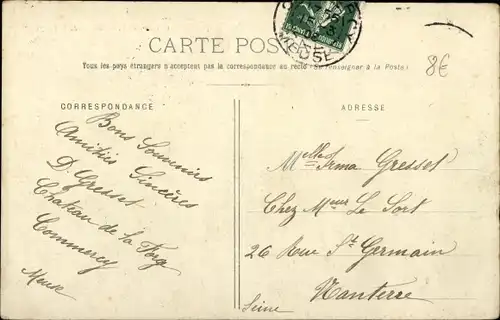 CARTE POSTALE
Tous les pays étrangers n'acceptent pas la correspondance au recto (Se renseigner à la Poste)
8€
MEUSE
CORRESPONDANCE
ADRESSE
Bons Souvenirs
Amitiés Sincères
D. Gresset
Chateau de la Forg
Commercy
Meuse
Melle Irma Gresset
Chez Meur Le Sort
26 Rue St Germain
Nanterre
Seine